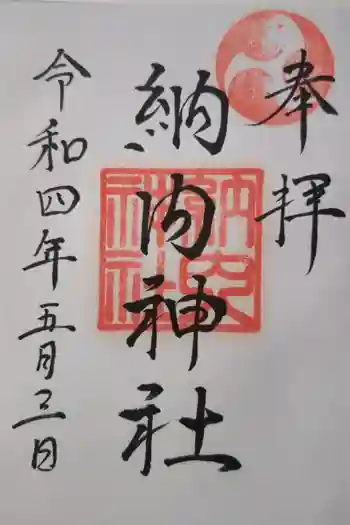 奉拝
納内神社
令和四年五月三日
納内神社